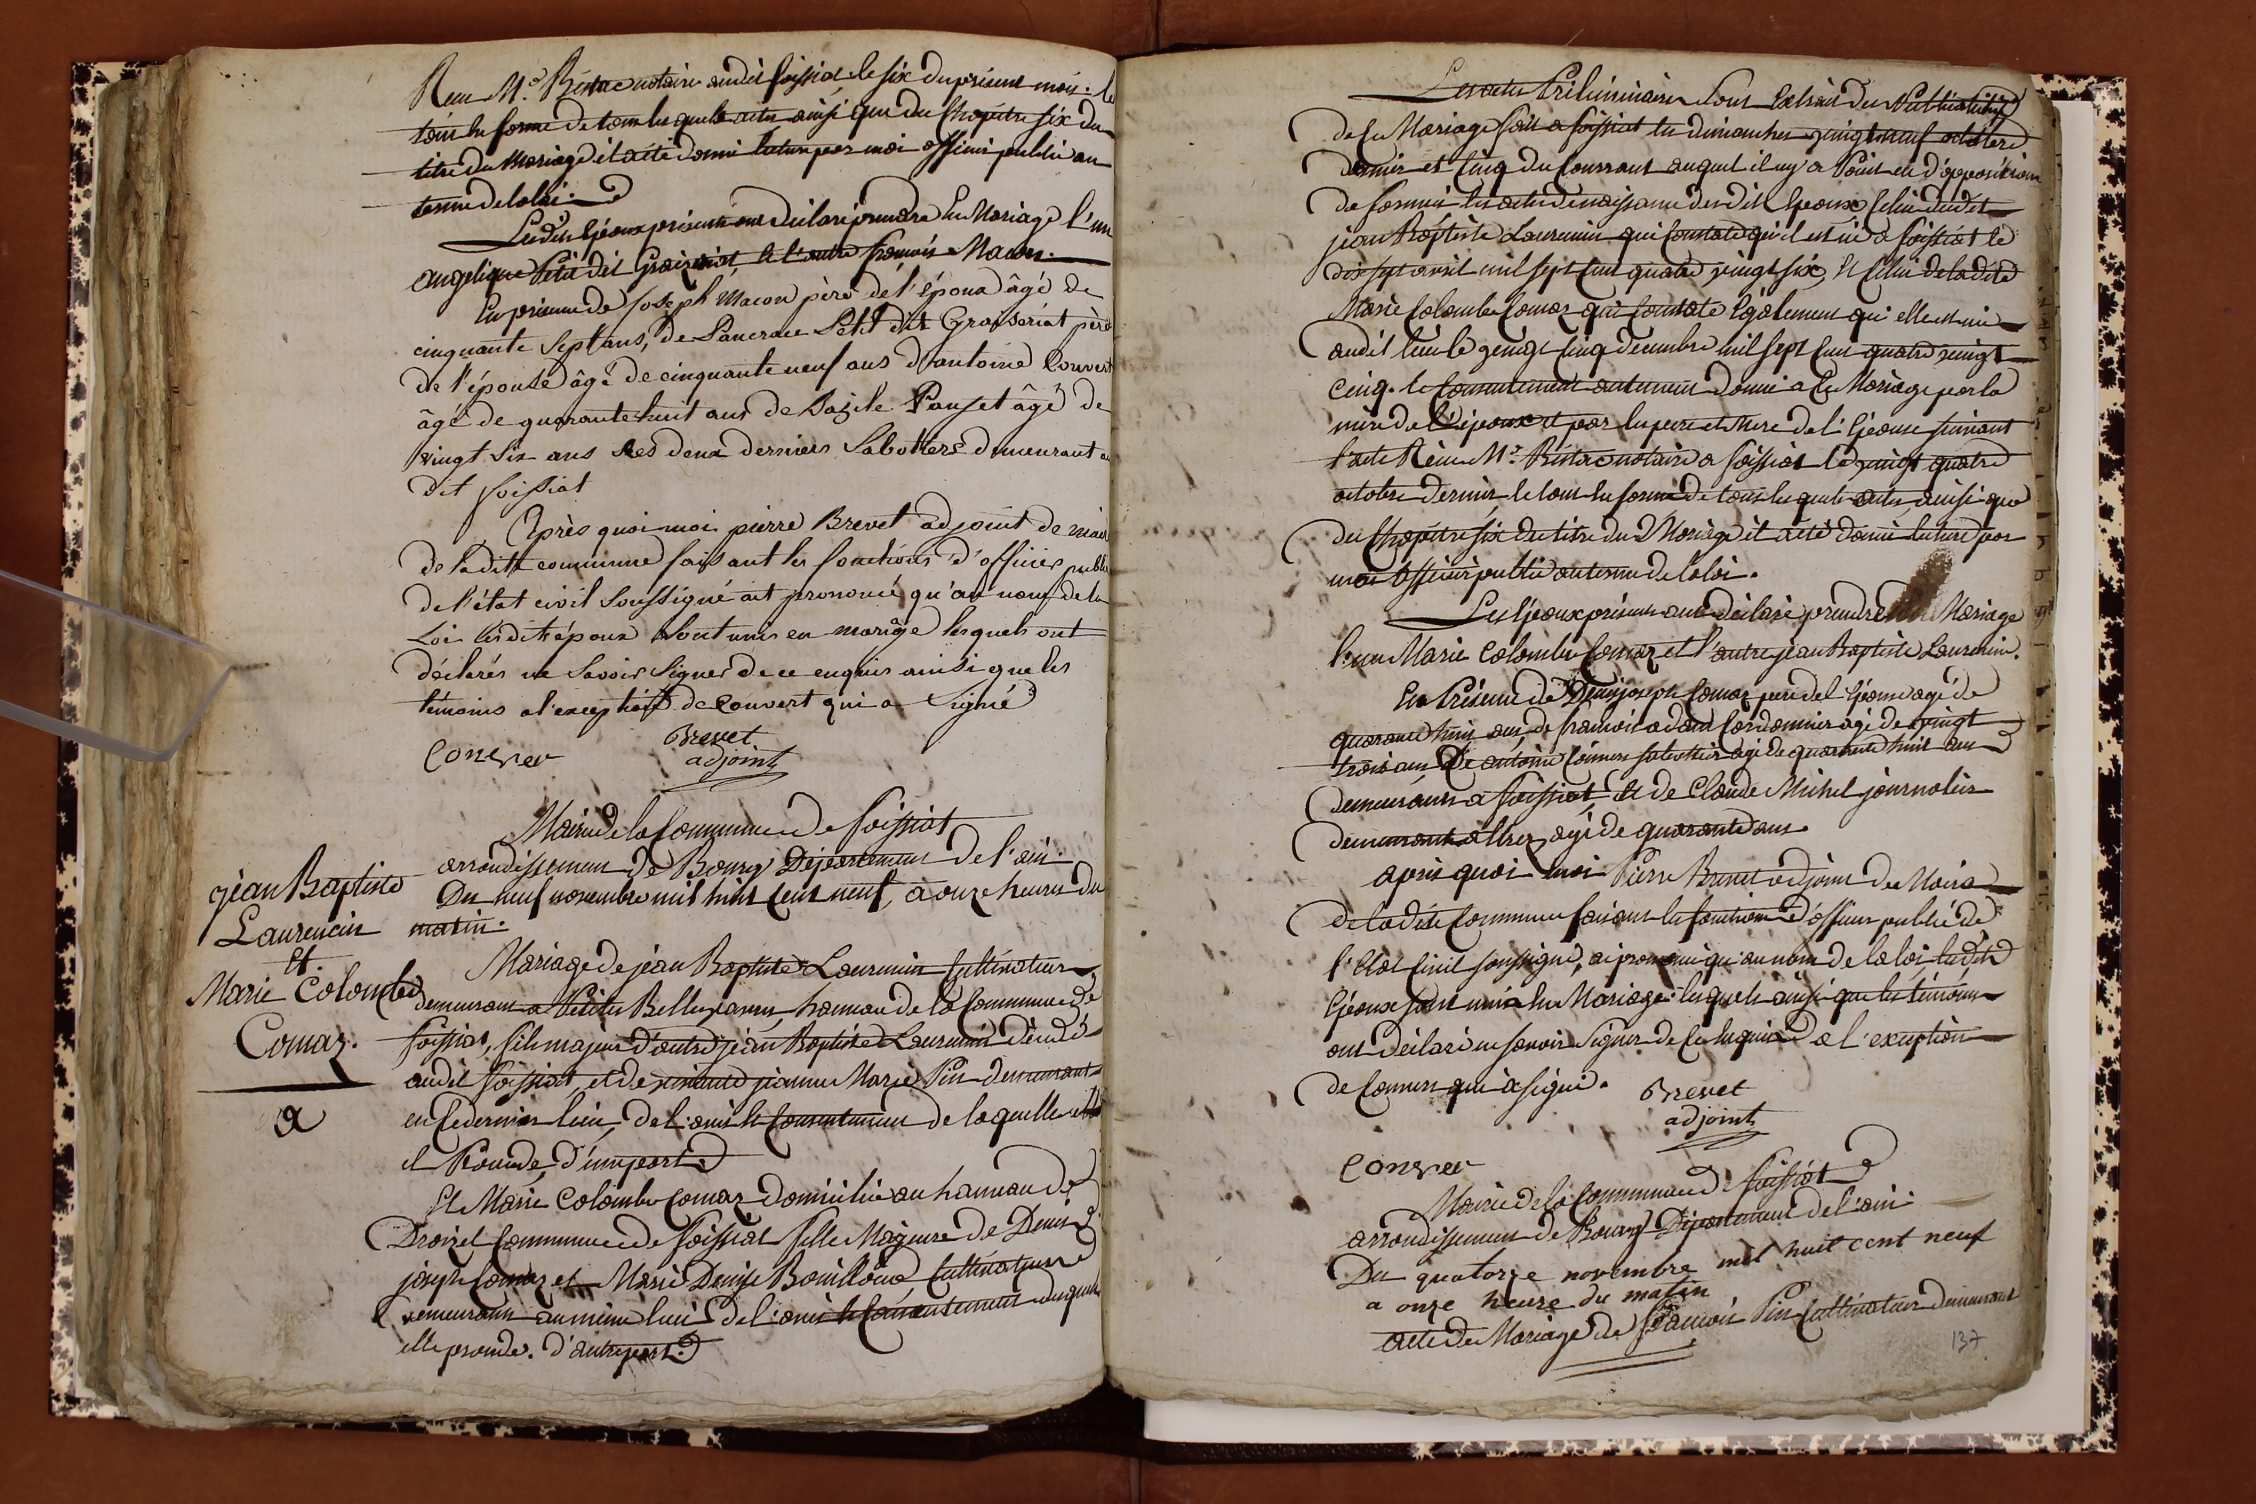 Reçu Me. Bistac notaire audit foissiat, le six du présent mois. le
tout en forme de tous lesquels actes ainsi que du Chapitre six du
titre du Mariage il a été donné lecture par moi officier public au
terme de la loi.
Lesdits époux présents ont déclaré prendre en Mariage l'un
angelique Petit dit Groizeriat, et l'autre françois Macon.
En présence de Joseph Macon père de l'époux âgé de
cinquante Sept ans, de Pancrace Petit dit Groiseriat père
de l'épouse âgé de cinquante neuf ans d'antoine Convert
âgé de quarante huit ans de Bazile Pauget âgé de
vingt Six ans les deux derniers Sabottiers demeurant au
dit foissiat
Après quoi moi pierre Brevet adjoint de maire
de la ditte commune faisant les fonctions d'officier public
de l'état civil Soussigné ait prononcé qu'au nom de la
Loi lesdits époux Sont unis en mariâge lesquels ont
déclarés ne Savoir Signer de ce enquis ainsi que les
témoins a l'exception de Convert qui a Signé
Conver
Brevet
adjoint
Mairie de la Commune de foissiat
arrondissement de Bourg Département de l'ain.
Du neuf novembre mil huit cent neuf, a onze heures du
matin.
jean Baptiste
Laurencin
Et
Marie Colombe
Comaz.
Mariage de jean Baptiste Laurencin Cultivateur
demeurant a Petites Bellevavres, hameau de la Commune de
foissiat, fils majeur d'autre jean Baptiste Laurencin décédé
audit foissiat, et de vivante jeanne Marie Pin demeurant
en ce dernier lieu, de l'avis et Consentement de laquelle
il Procède, d'une part
Et Marie Colombe Comaz domiciliée au hameau de
Druizet Commune de foissiat fille Majeure de Denis
joseph Comaz et Marie Denise Bouilloux Cultivateurs
demeurants au même lieu de l'avis et Consentement desquels
elle procède. d'autre part.
Les actes Préliminaires sont Extrait des Publications
de ce Mariage fait a foissiat les dimanches vingt neuf octobre
dernier et Cinq du Courrant auquel il n'y a Point eû d'opposition
de former les actes de naissance desdits Epoux, Celui dudit
jean Baptiste Laurencin qui Constate qu'il est né a foissiat le
dix sept avril mil sept cent quatre vingt six, Et Celui de la dite
Marie Colombe Comaz qui Constate Egalement qu'elle est née
audit lieu le vingt cinq décembre mil sept cent quatre vingt
cinq. le Consentement autenien donné a ce Mariage par la
mère de l'époux et par les père et Mère de l'Epouse suivant
l'acte Reçu Me. Bistac notaire a foissiat le vingt quatre
octobre dernier, le tout en forme de tous lesquels actes, ainsi que
du Chapitre six du titre du Mariage il a été donné lecture par
moi officier public au terme de la loi.
Les Epoux présents ont déclaré prendre en Mariage
l'un Marie Colombe Comaz et l'autre jean Baptiste Laurencin.
En Présence de Denis joseph Comaz père de l'Epouse agé de
quarante huit ans, de françois adam Cordonnier agé de vingt
trois ans De antoine Convert sabottier agé de quarante huit ans
demeurants a foissiat, Et de Claude Michel journalier
demeurant a agé de quarante ans.
après quoi moi Pierre Brevet adjoint du Maire
de la dite Commune faisant les fonctions d'officier public de
l'Etat Civil soussigné, ai prononcé qu'au nom de la loi, lesdits
Epoux sont unis en Mariage: lesquels ainsi que les témoins
ont déclaré ne savoir Signer de ce Enquis a l'exception
de Convers qui a signé.
Brevet
adjoint
Conver
Mairie de la Commune de foissiat
arrondissement de Bourg Département de l'ain.
Du quatorze novembre mil huit cent neuf
a onze heure du matin
acte de Mariage de françois Pin Cultivateur demeurant
137